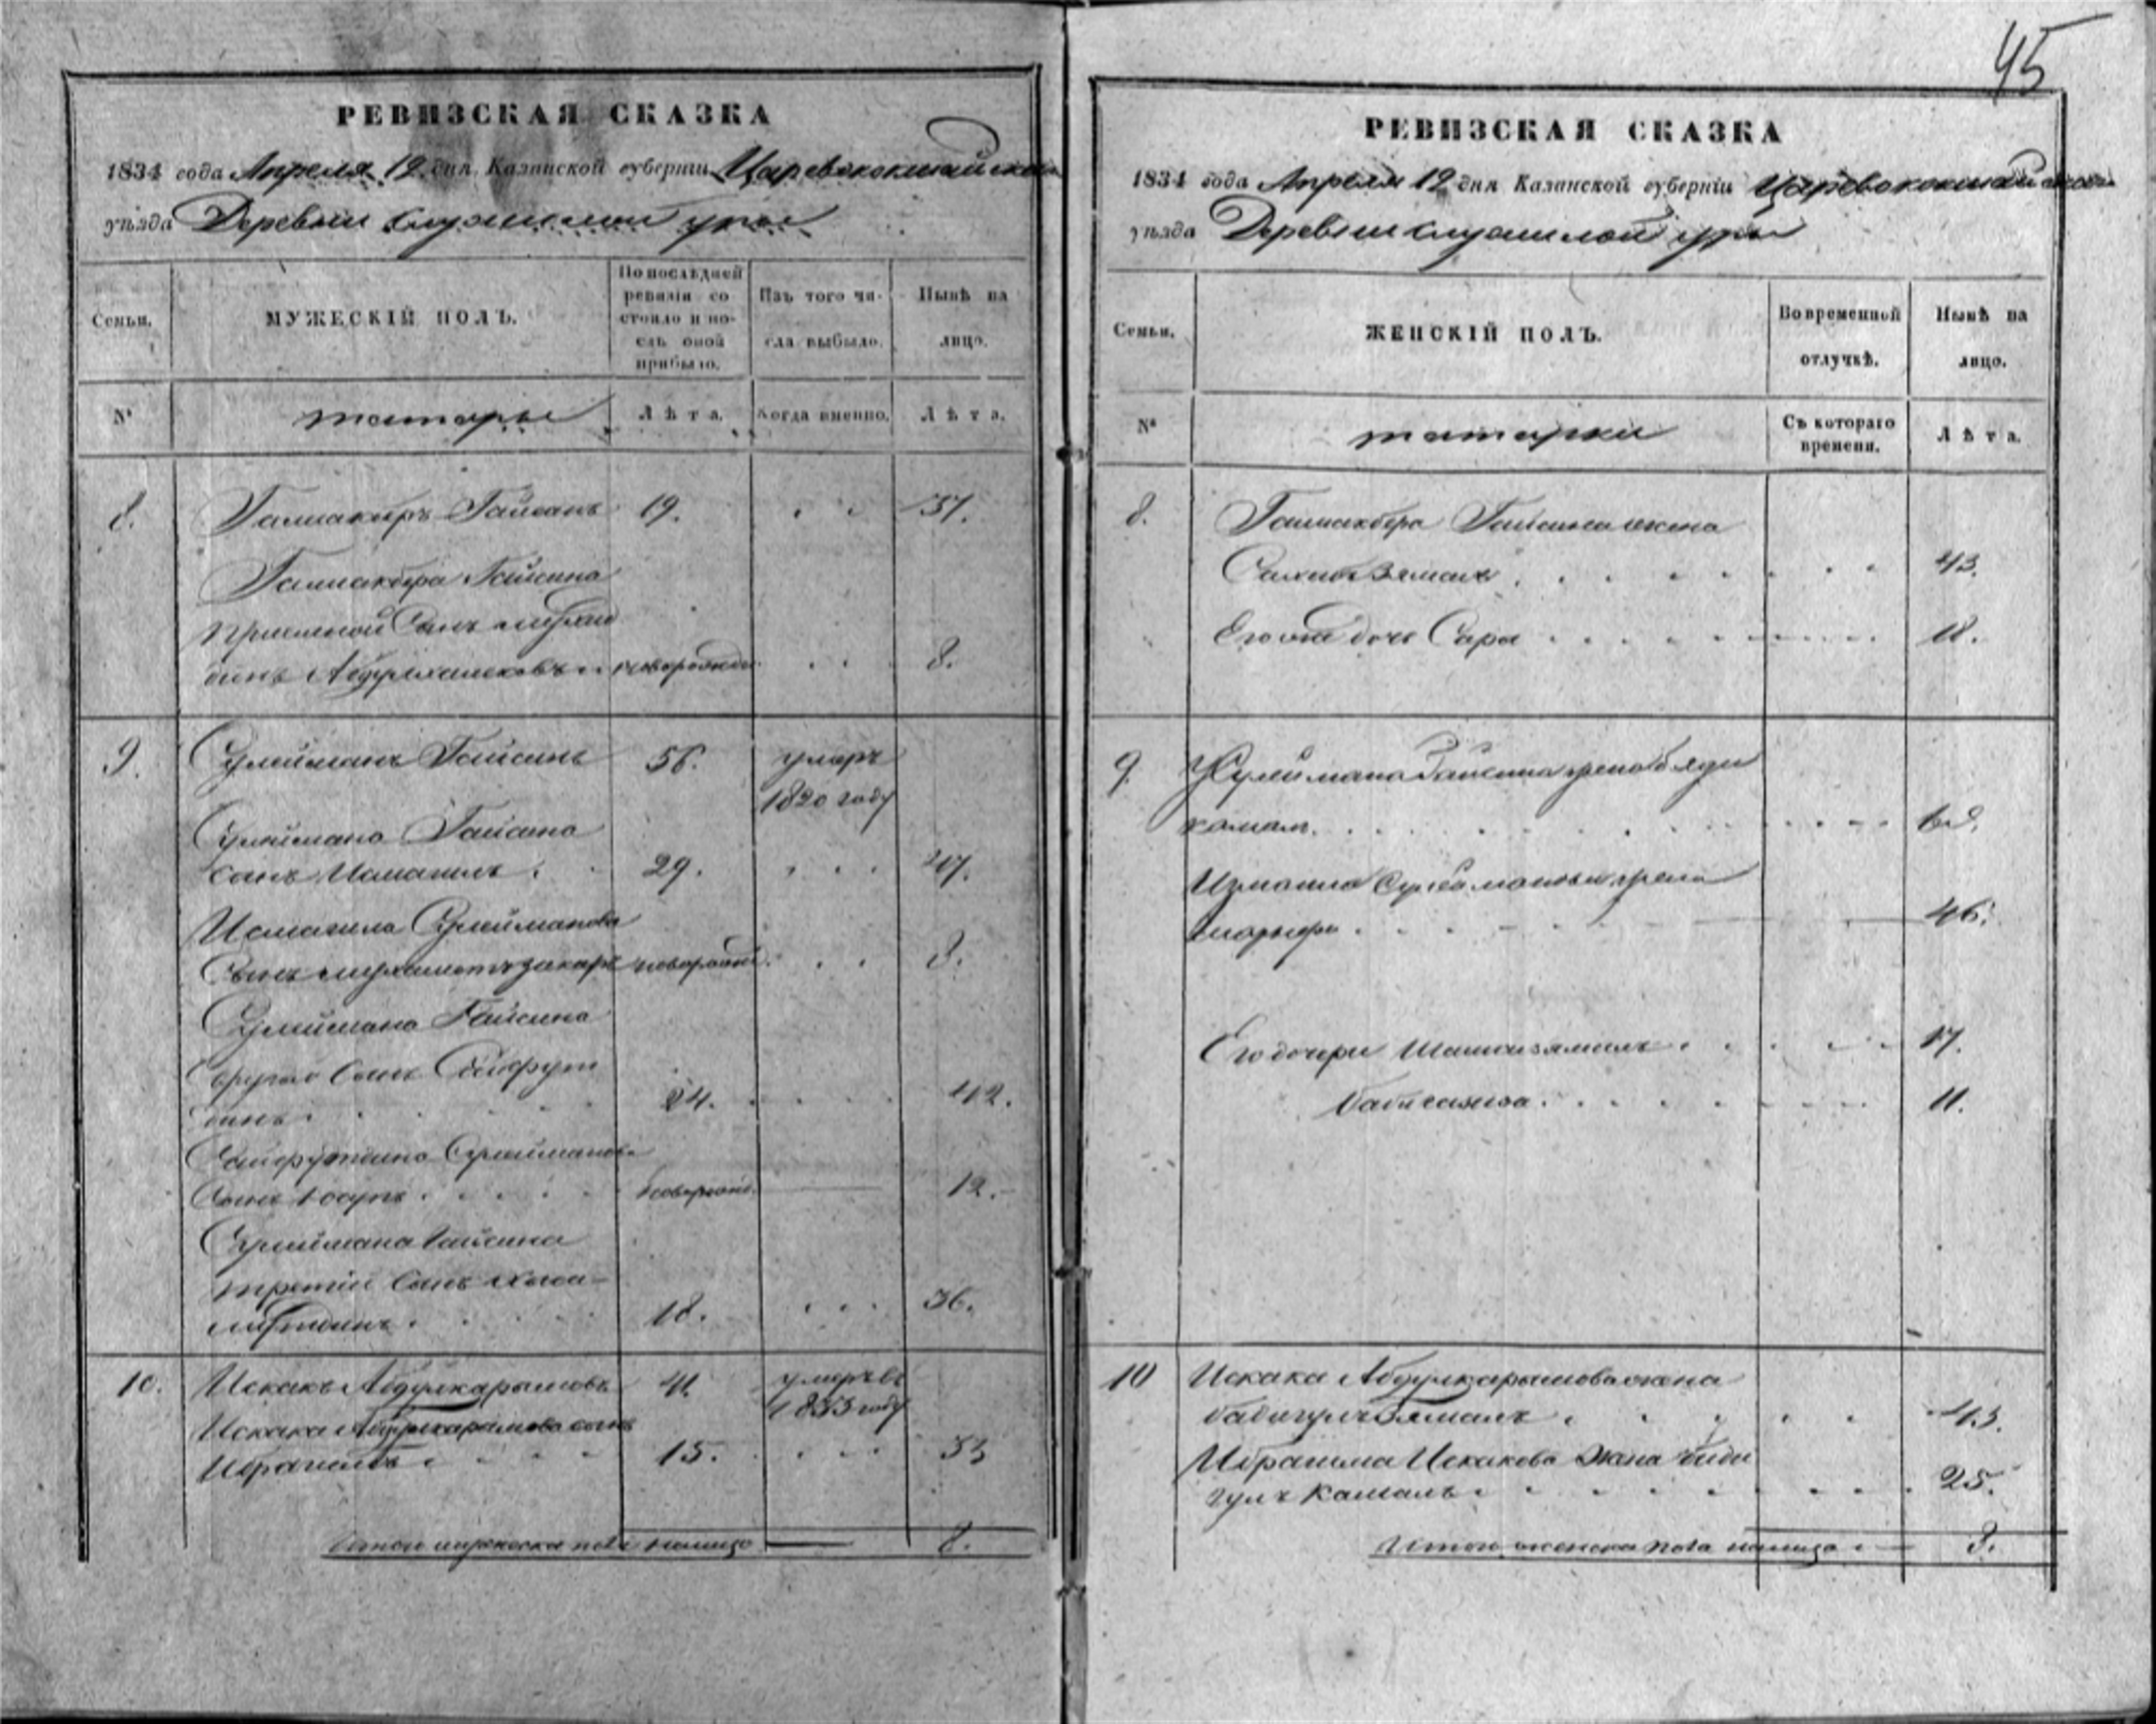 45
РЕВИЗСКАЯ СКАЗКА
1834 года Апреля 12 дня Казанской губернiи Царевококшайской
уѣзда Деревни Служилой уры
Семьи.
МУЖЕСКIЙ ПОЛЪ.
По послѣдней ревизiи состояло и послѣ оной прибыло.
Изъ того числа выбыло.
Нынѣ на лицо.
№
татары
Лѣта.
Когда именно.
Лѣта.
8. Галиакберъ Гайсинъ 19. 37.
Галиакбера Гайсина
приемной Сынъ
динъ Абдулхаликовъ новорожд. 8.
9. Сулейманъ Гайсинъ 56. умеръ
1820 году
Сулеймана Гайсина
сынъ Исмагилъ 29. 47.
Исмагила Сулейманова
Сынъ новорожд. 8.
Сулеймана Гайсина
другой Сынъ Сайфут
динъ 24. 42.
Сайфутдина Сулейманова
Сынъ Юсупъ новорожд. 12.
Сулеймана Гайсина
третiй Сынъ
18. 36.
10. Искакъ Абдулкаримовъ 41. умеръ въ
1833 году
Искака Абдулкаримова сынъ
Ибрагимъ 15. 33
Итого мужеска пола налицо 8.
РЕВИЗСКАЯ СКАЗКА
1834 года Апреля 12 дня Казанской губернiи Царевококшайской
уѣзда Деревни Служилой уры
Семьи.
ЖЕНСКIЙ ПОЛЪ.
Во временной отлучкѣ.
Нынѣ на лицо.
№
татарки
Съ котораго времени.
Лѣта.
8. Галиакбера Гайсина жена
43.
Его дочь Сара 18.
9. Сулеймана Гайсина жена
камал.
Измаила Сулейманова жена
46.
Его дочери 17.
11.
10 Искака Абдулкаримова жена
43.
Ибрагима Искакова жена Биби
гулъ Камалъ 25.
Итого женска пола налицо 8.